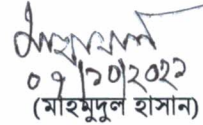 ০৭/১০/২০২১
(মাহমুদুল হাসান)